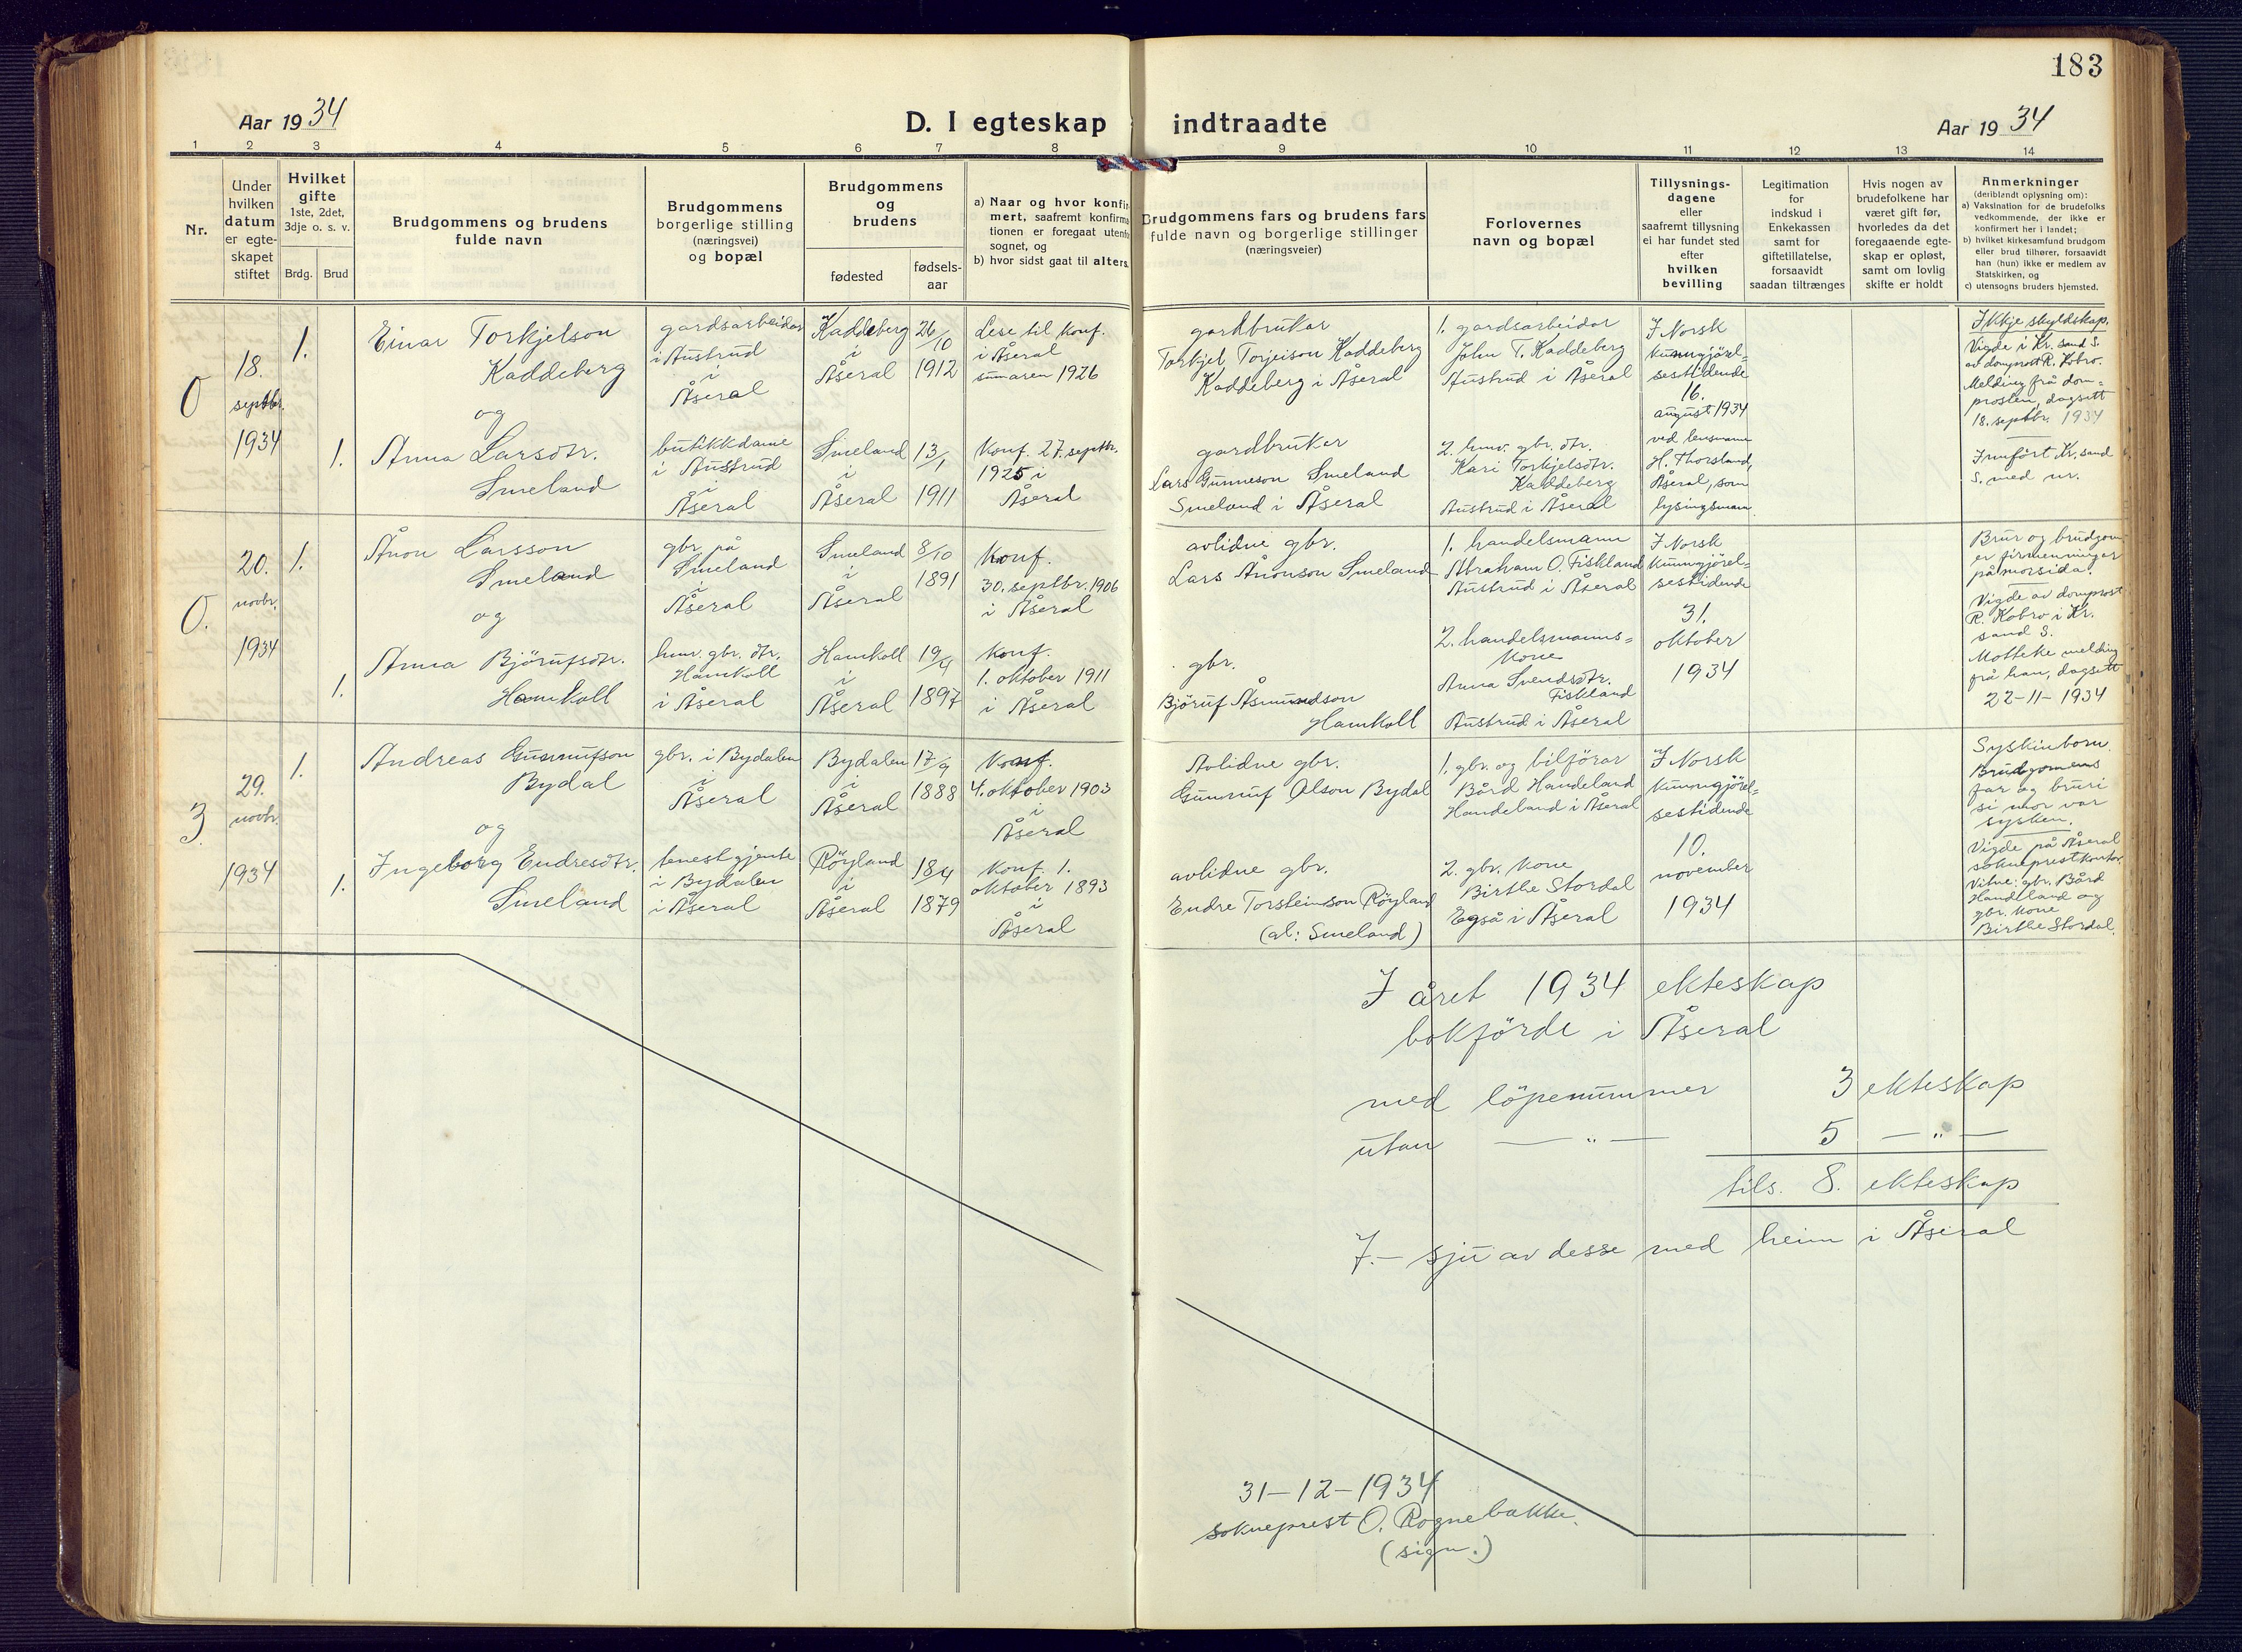 183
Aar 1934
D. I egteskap indtraadte
Aar 1934
1 2 3 4 5 6 7 8 9 10 11 12 13 14
Nr.
Under
hvilken
datum
er egte-
skapet
stiftet
Hvilket
gifte
1ste, 2det,
3dje o. s. v.
Brdg. Brud
Brudgommens og brudens
fulde navn
Brudgommens
borgerlige stilling
(næringsvei)
og bopæl
Brudgommens
og
brudens
fødested
fødsels-
aar
a) Naar og hvor konfir-
mert, saafremt konfirma
tionen er foregaat utenfo
sognet, og
b) hvor sidst gaat til alters.
Brudgommens fars og brudens fars
fulde navn og borgerlige stillinger
(næringsveier)
Forlovernes
navn og bopæl
Tillysnings-
dagene
eller
saafremt tillysning
ei har fundet sted
efter
hvilken
bevilling
Legitimation
for
indskud i
Enkekassen
samt for
giftetillatelse,
forsaavidt
saadan tiltrænges
Hvis nogen av
brudefolkene har
været gift før,
hvorledes da det
foregaaende egte-
skap er opløst,
samt om lovlig
skifte er holdt
Anmerkninger
(deriblandt oplysning om):
a) Vaksination for de brudefolks
vedkommende, der ikke er
konfirmert her i landet;
b) hvilket kirkesamfund brudgom
eller brud tilhører, forsaavidt
han (hun) ikke er medlem av
Statskirken, og
c) utensogns bruders hjemsted.
0
18.
septbr.
1934
1.
Einar Torkjelson
Kaddeberg
og
gardsarbeidar
i Austrud
i
Åseral
Kaddeberg
i
Åseral
26/10
1912
Lese til konf.
i Åseral
sumaren 1926
gardbrukar
Torkjel Torjeison Kaddeberg
Kaddeberg i Åseral
1. gardsarbeidar
John T. Kaddeberg
Austrud i Åseral
I Norsk
kunngjörel=
sestidende
16.
august 1934
ved lensmann
H. Thorsland,
Åseral, som
lysingsmann.
Ikkje skyldskap.
Vigde i Kr. sand S.
av domprost R. Kobro.
Melding frå dom=
prosten, dagsett
18. septbr. 1934
Innfört Kr. sand
S. med nr.
1.
Anna Larsdtr.
Smeland
butikkdame
i Austrud
i
Åseral
Smeland
i
Åseral
13/1
1911
Konf. 27. septbr.
1925 i
Åseral
gardbruker
Lars Gunneson Smeland
Smeland i Åseral
2. hmv. gbr. dtr.
Kari Torkjelsdtr.
Kaddeberg
Austrud i Åseral
0.
20.
novbr.
1934
1.
Ånon Larsson
Smeland
og
gbr på
Smeland
i
Åseral
Smeland
i
Åseral
8/10
1891
Konf.
30. septbr. 1906
i Åseral
avlidne gbr.
Lars Ånonson Smeland
1. handelsmann
Abraham O. Fiskland
Austrud i Åseral
I Norsk
kunngjörel=
sestidende
31.
oktober
1934
Brur og brudgom
er firmenningar
på morsida.
Vigde av domprost
R. Kobro i Kr.
sand S.
Motteke melding
frå han, dagsett
22-11-1934
1.
Anna Björufsdtr.
Hamkoll
hmv. gbr. dtr.
Hamkoll
i Åseral
Hamkoll
i
Åseral
19/4
1897
Konf.
1. oktober 1911
i Åseral
gbr.
Björuf Åsmundson
Hamkoll
2. handelsmanns=
kone
Anna Svendsdtr.
Fiskland
Austrud i Åseral
3.
29.
novbr.
1934
1.
Andreas Gunnufson
Bydal
og
gbr. i Bydalen
i
Åseral
Bydalen
i
Åseral
17/9
1888
Konf.
4. oktober 1903
i
Åseral
Avlidne gbr.
Gunnuf Olson Bydal
1. gbr. og bilförar
Bård Handeland
Handeland i Åseral
I Norsk
kunngjörel=
sestidende
10.
november
1934
Syskinborn.
Brudgomens
far og bruri
si mor var
sysken.
Vigde på Åseral
sokneprestkontor
Vitne: gbr. Bård
Handeland og
gbr. kone
Birthe Stordal.
1.
Ingeborg Endresdtr.
Smeland
tenestgjente
i Bydalen
i Åseral
Röyland
i
Åseral
18/4
1879
Konf. 1.
oktober 1893
i
Åseral
avlidne gbr.
Endre Torsteinson Röyland
(al: Smeland)
2. gbr. kone
Birthe Stordal
Egså i Åseral
I året 1934 ekteskap
bokförde i Åseral
med löpenummer 3 ekteskap
utan — „ — 5 — „ —
tils. 8. ekteskap
7.- sju av desse med heim i Åseral
31-12-1934
sokneprest O. Rognebakke.
(sign.)